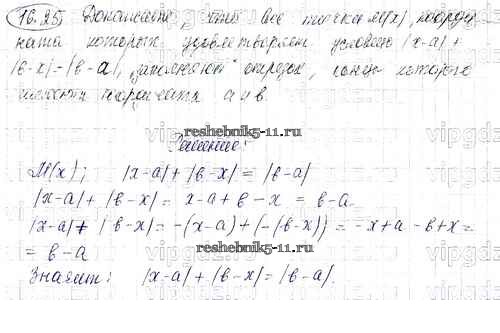 16.25) Доказать, что все точки M(x), коорди
ната которых удовлетворяет условию |x-a| +
|в-x| = |в-a|, "заполняют" отрезок, концы которого
имеют координаты a и в.
reshebnik5-11.ru
Решение:
M(x); |x-a| + |в-x| = |в-a|
|x-a| + |в-x| = x-a+в-x = в-a.
|x-a| + |в-x| = -(x-a)+(-(в-x)) = -x+a-в+x=
= в-a
reshebnik5-11.ru
Значит: |x-a| + |в-x| = |в-a|.